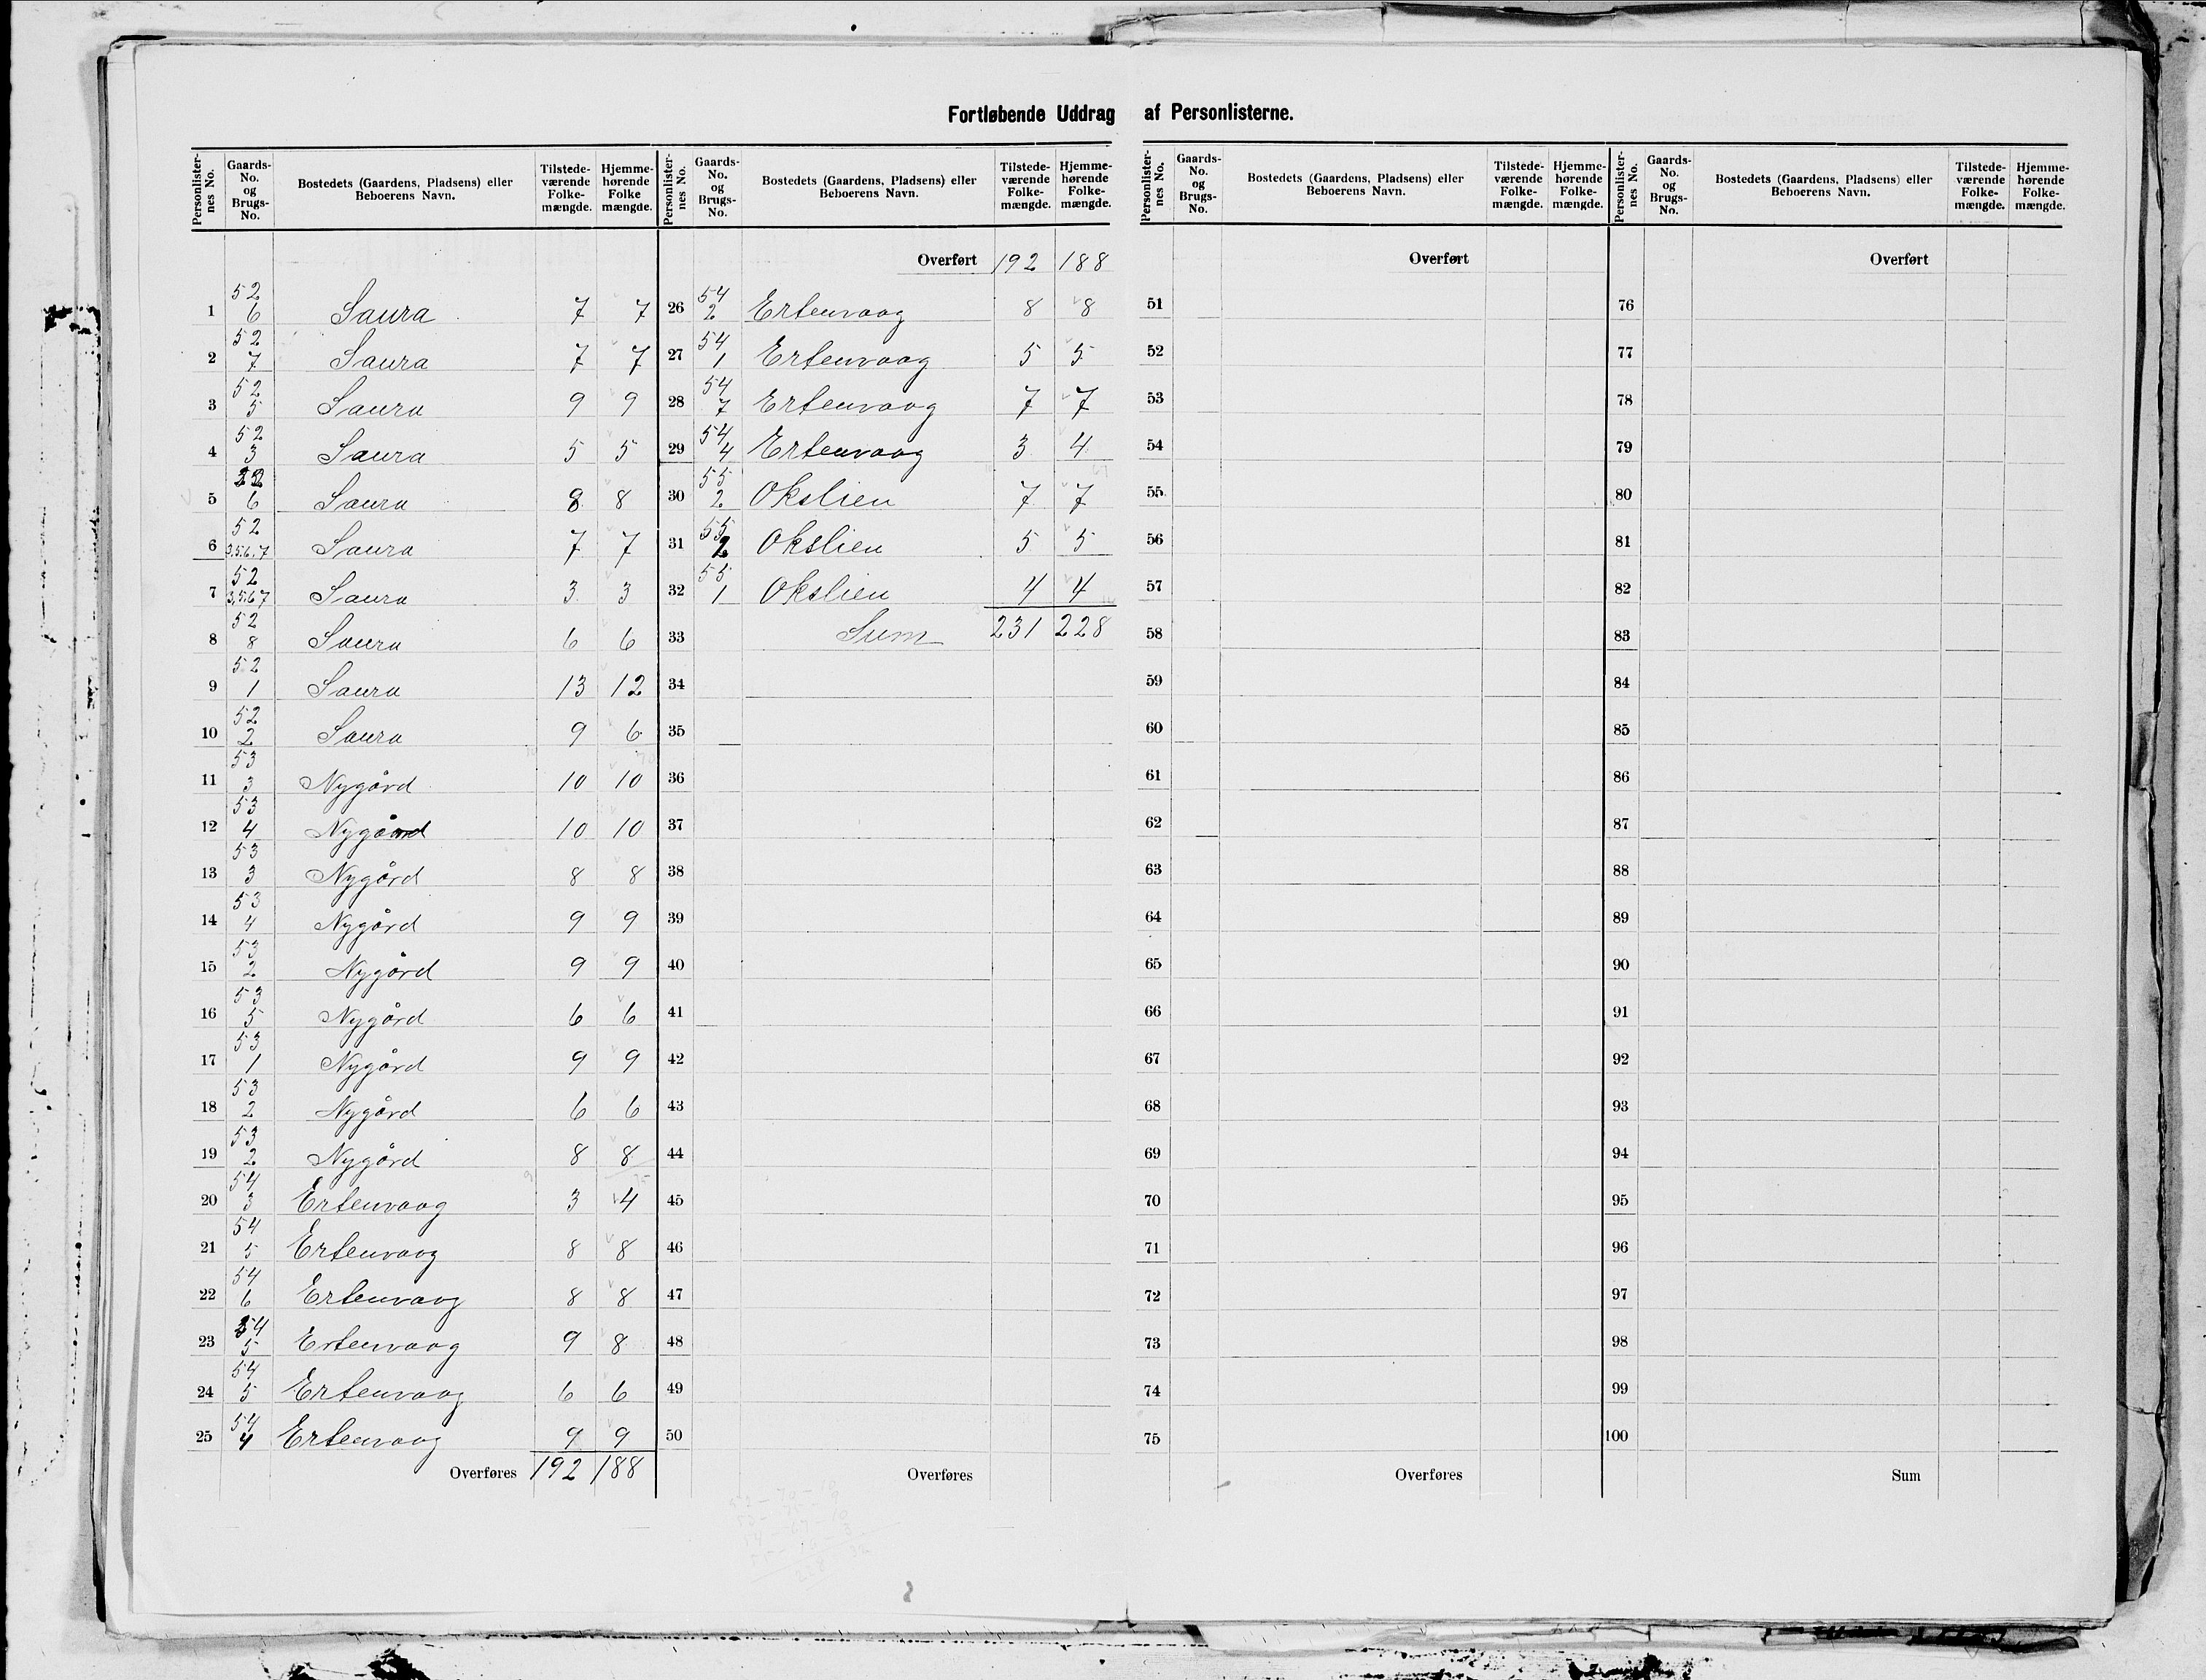 Fortløbende Uddrag af Personlisterne.
Personlisternes No. Gaards-No. og Brugs-No. Bostedets (Gaardens, Pladsens) eller Beboerens Navn. Tilstedeværende Folkemængde. Hjemmehørende Folke mængde.
1 52 6 Saura 7 7
2 52 7 Saura 7 7
3 52 5 Saura 9 9
4 52 3 Saura 5 5
5 52 6 Saura 8 8
6 52 3.5.6.7 Saura 7 7
7 52 3.5.6 7 Saura 3 3
8 52 8 Saura 6 6
9 52 1 Saura 13 12
10 52 2 Saura 9 6
11 53 3 Nygård 10 10
12 53 4 Nygård 10 10
13 53 3 Nygård 8 8
14 53 4 Nygård 9 9
15 53 2 Nygård 9 9
16 53 5 Nygård 6 6
17 53 1 Nygård 9 9
18 53 2 Nygård 6 6
19 53 2 Nygård 8 8
20 54 3 Ertenvaag 3 4
21 54 5 Ertenvaag 8 8
22 54 6 Ertenvaag 8 8
23 54 5 Ertenvaag 9 8
24 54 5 Ertenvaag 6 6
25 54 4 Ertenvaag 9 9
Overføres 192 188
Personlisternes No. Gaards-No. og Brugs-No. Bostedets (Gaardens, Pladsens) eller Beboerens Navn. Tilstedeværende Folkemængde. Hjemmehørende Folkemængde.
Overført 192 188
26 54 2 Ertenvaag 8 8
27 54 1 Ertenvaag 5 5
28 54 7 Ertenvaag 7 7
29 54 4 Ertenvaag 3 4
30 55 2 Okslien 7 7
31 55 2 Okslien 5 5
32 55 1 Okslien 4 4
33 Sum 231 228
34
35
36
37
38
39
40
41
42
43
44
45
46
47
48
49
50
Overføres
Personlisternes No. Gaards-No. og Brugs-No. Bostedets (Gaardens, Pladsens) eller Beboerens Navn. Tilstedeværende Folkemængde. Hjemmehørende Folkemængde.
Overført
51
52
53
54
55
56
57
58
59
60
61
62
63
64
65
66
67
68
69
70
71
72
73
74
75
Overføres
Personlisternes No. Gaards-No. og Brugs-No. Bostedets (Gaardens, Pladsens) eller Beboerens Navn. Tilstedeværende Folkemængde. Hjemmehørende Folkemængde.
Overført
76
77
78
79
80
81
82
83
84
85
86
87
88
89
90
91
92
93
94
95
96
97
98
99
100
Sum